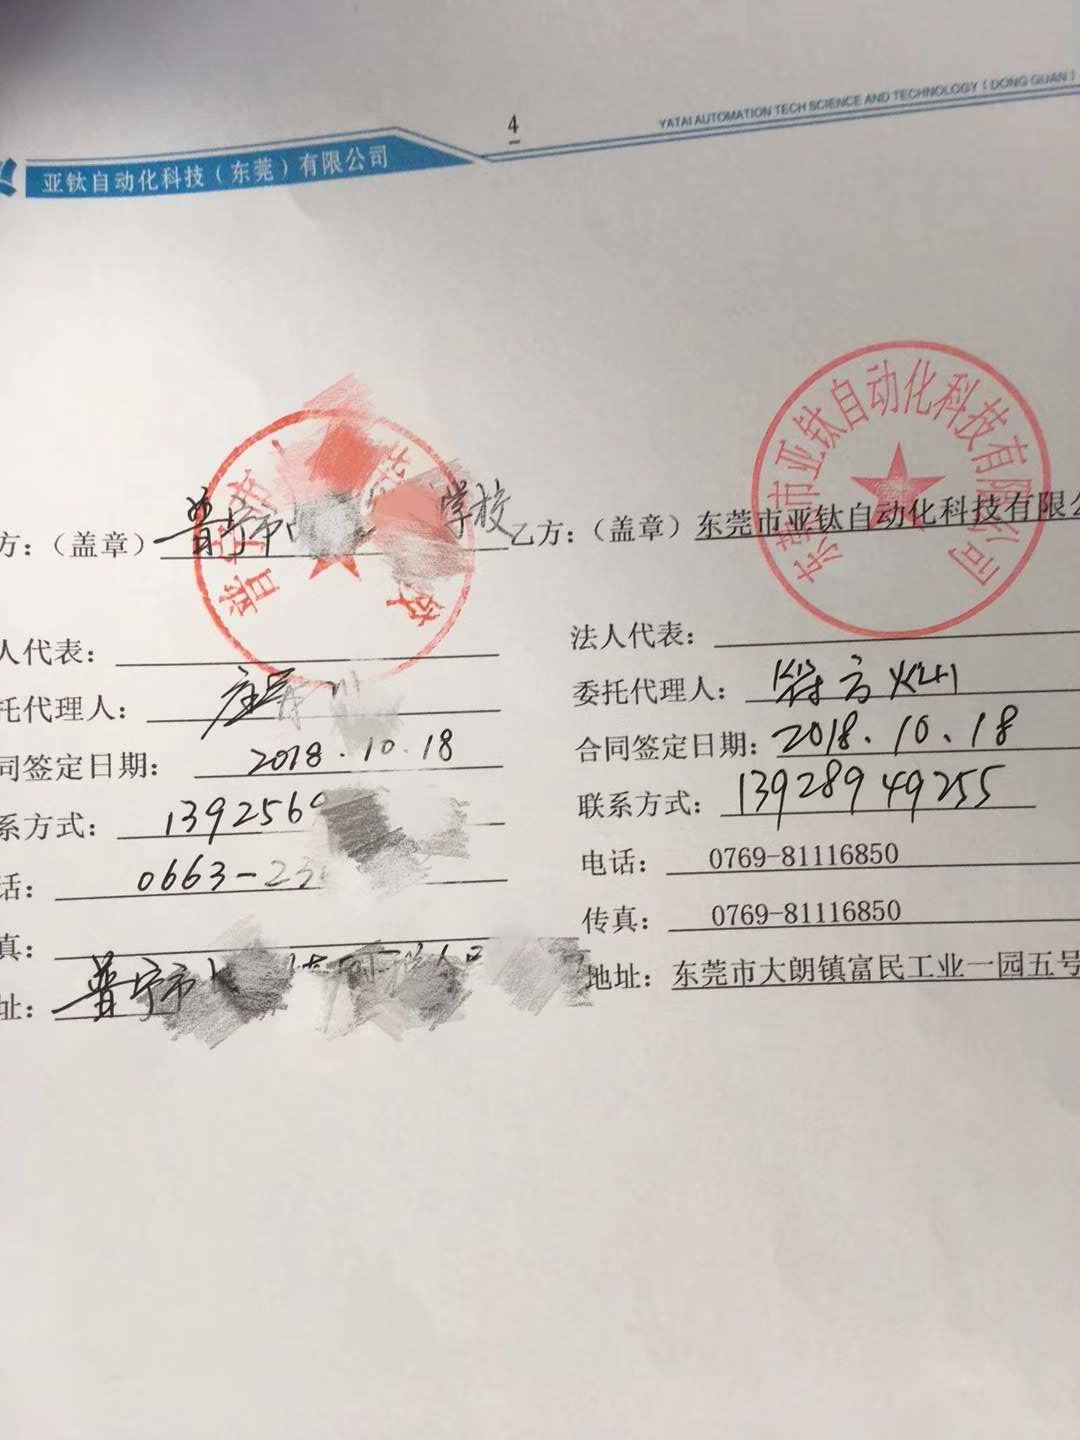 亚钛自动化科技（东莞）有限公司
4
YATAI AUTOMATION TECH SCIENCE AND TECHNOLOGY (DONG GUAN)
方：（盖章）普宁市 学校
乙方：（盖章）东莞市亚钛自动化科技有限公
普宁市 校
东莞市亚钛自动化科技有限公司
人代表：
法人代表：
托代理人：
委托代理人：
同签定日期： 2018.10.18
合同签定日期：2018.10.18
系方式：1392560
联系方式：13928949255
话：0663-23
电话：0769-81116850
真：
传真：0769-81116850
址：普宁市
地址：东莞市大朗镇富民工业一园五号